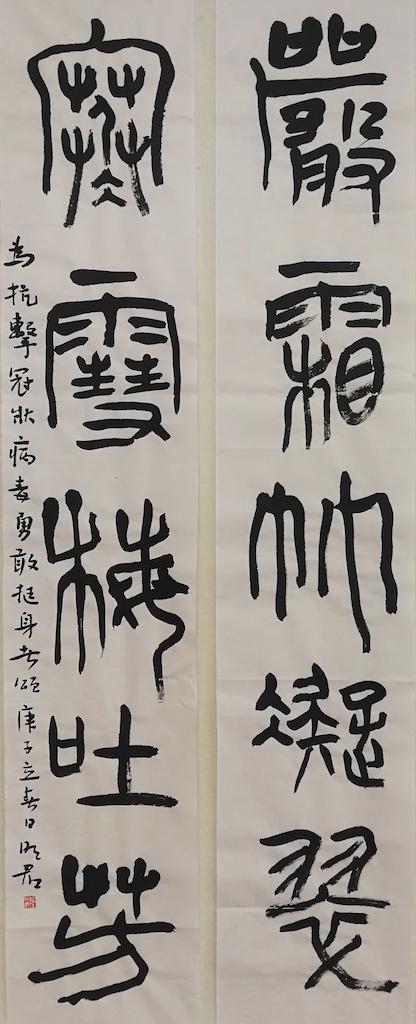 嚴霜竹凝翠
寒雪梅吐芳
為抗擊冠狀病毒勇敢挺身者頌庚子立春日